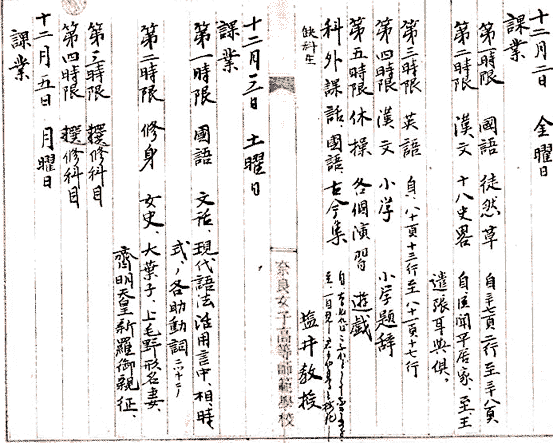 十二月二日 金曜日
課業
第一時限 國語 徒然草
第二時限 漢文 十八史畧
遣張耳與俱、
第三時限 英語 自、八十頁十三行至八十一頁十七行
第四時限 漢文 小学 小学題辞
第五時限 休操 各個演習 遊戯
科外課話、國語、古今集
塩井教授
缺科生
奈良女子高等師範學校
十二月三日 土曜日
課業
第一時限 國語 文法、現代語法活用言中、相、時、
式、ノ各助動詞
第二時限 修身 女史、大葉子、上毛野形名妻、
齊明天皇新羅御親征、
第三時限 撰修科目
第四時限 撰修科目
十二月五日 月曜日
課業